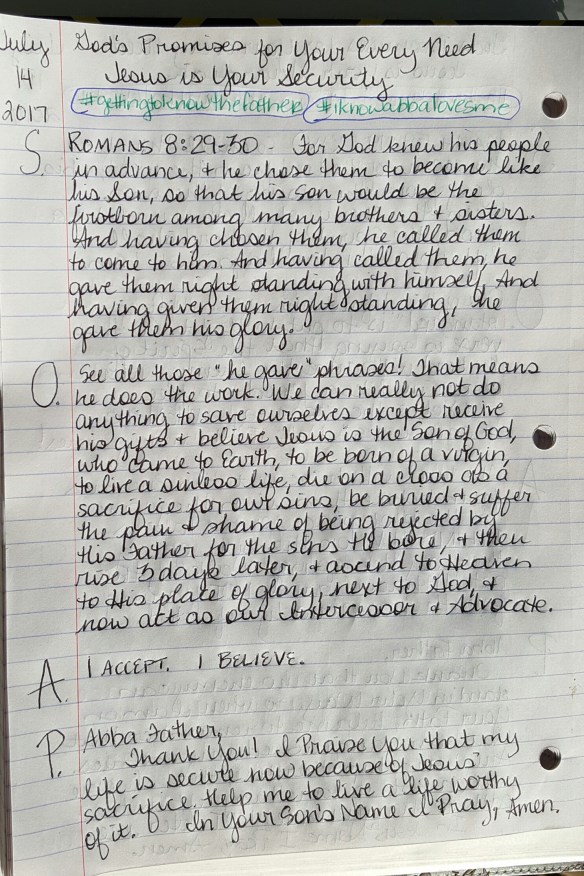 July 14 2017
God's Promises for Your Every Need
Jesus is Your Security
#gettingtoknowthefather #iknowabbalovesme
S. ROMANS 8:29-30 - For God knew his people
in advance, & he chose them to become like
his Son, so that his Son would be the
firstborn among many brothers & sisters.
And having chosen them, he called them
to come to him. And having called them, he
gave them right standing with himself, And
having given them right standing, he
gave them his glory.
O. See all those "he gave" phrases! That means
he does the work. We can really not do
anything to save ourselves except receive
his gifts & believe Jesus is the Son of God,
who came to Earth, to be born of a virgin,
to live a sinless life, die on a cross as a
sacrifice for our sins, be buried & suffer
the pain & shame of being rejected by
His Father for the sins He bore, & then
rise 3 days later, & ascend to Heaven
to His place of glory, next to God, &
now act as our Intercessor & Advocate.
A. I ACCEPT. I BELIEVE.
P. Abba Father,
Thank You! I Praise You that my
life is secure now because of Jesus'
sacrifice. Help me to live a life worthy
of it. In Your Son's Name I Pray, Amen.